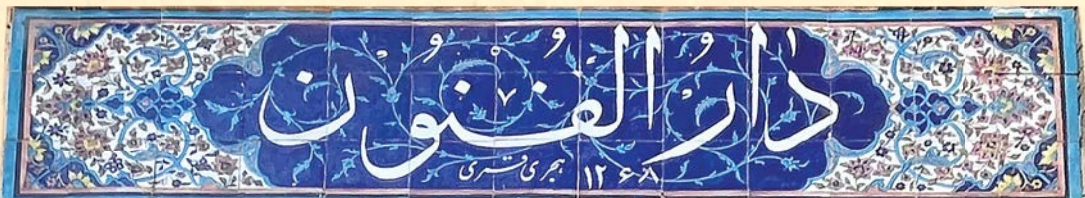 دارُ الفُنُوْن
۱۲۶۸ هجری قمری